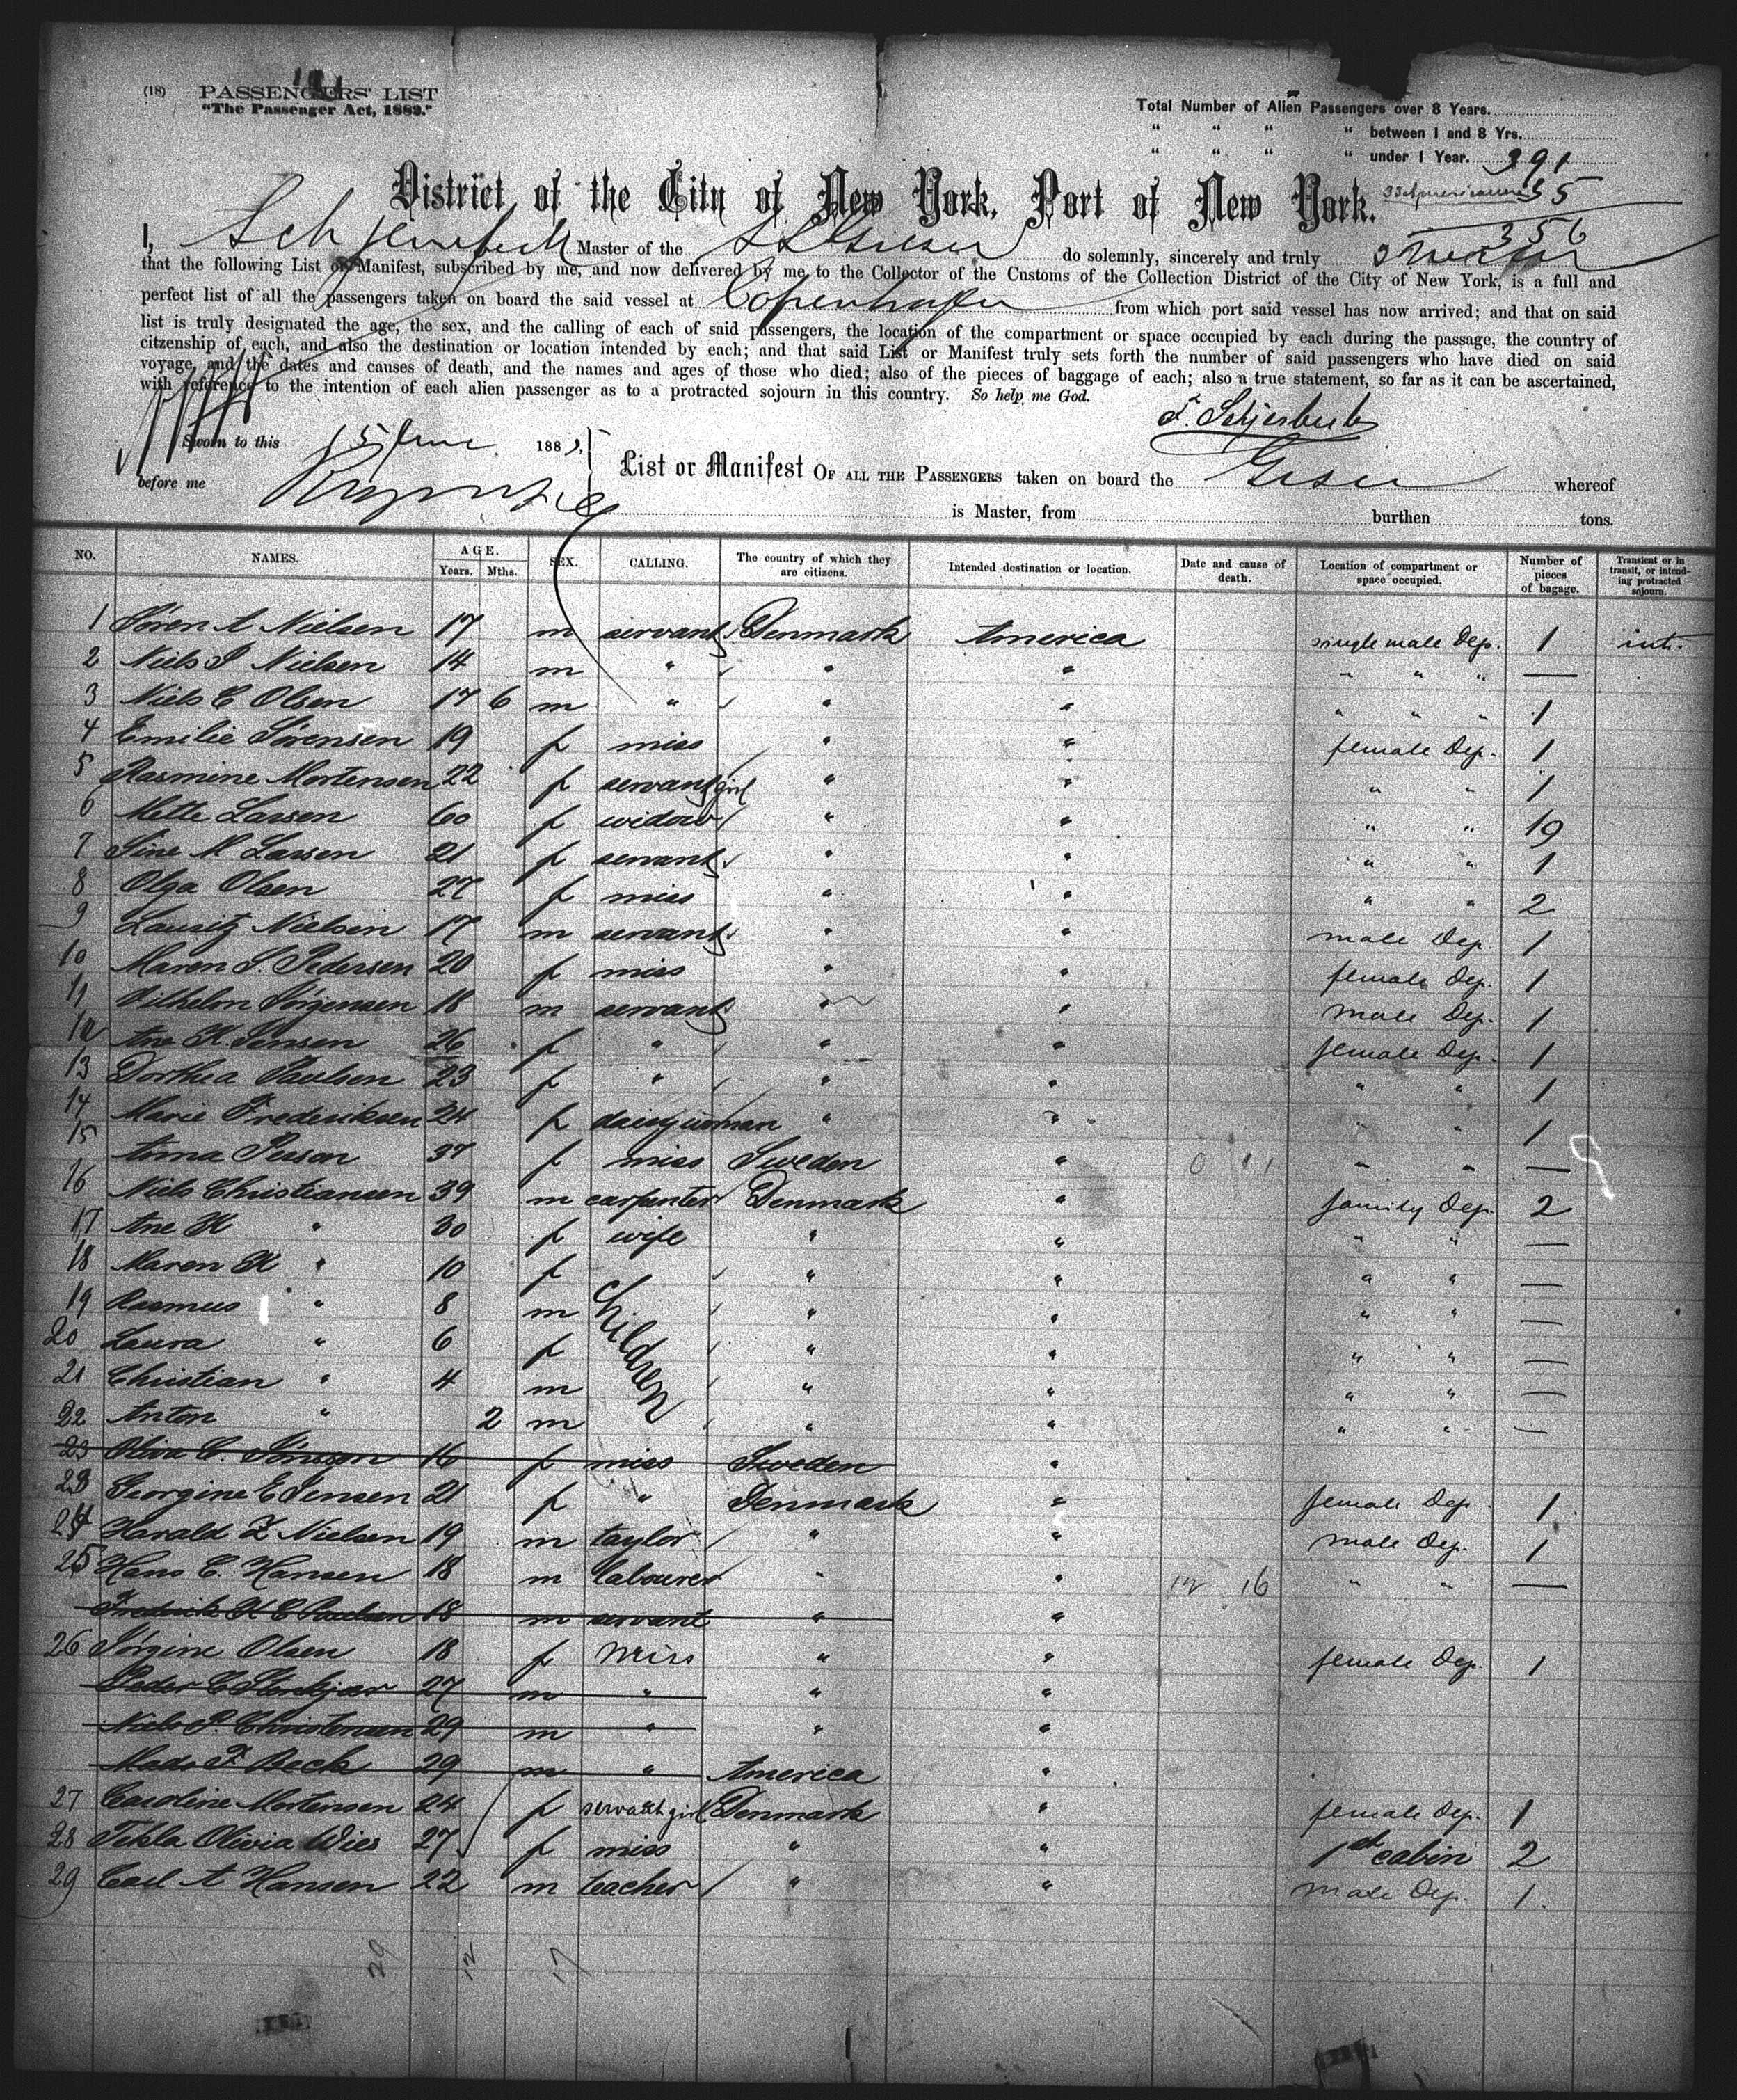 (18) PASSENGERS' LIST
"The Passenger Act, 1882."
Total Number of Alien Passengers over 8 Years.
" " " " between 1 and 8 Yrs.
" " " " under 1 Year. 391
35
356
District of the City of New York, Port of New York.
I, Schjerbeck Master of the SS Geiser do solemnly, sincerely and truly swear
that the following List or Manifest, subscribed by me, and now delivered by me to the Collector of the Customs of the Collection District of the City of New York, is a full and
perfect list of all the passengers taken on board the said vessel at Copenhagen from which port said vessel has now arrived; and that on said
list is truly designated the age, the sex, and the calling of each of said passengers, the location of the compartment or space occupied by each during the passage, the country of
citzenship of each, and also the destination or location intended by each; and that said List or Manifest truly sets forth the number of said passengers who have died on said
voyage, and the dates and causes of death, and the names and ages of those who died; also of the pieces of baggage of each; also a true statement, so far as it can be ascertained,
with reference to the intention of each alien passenger as to a protracted sojourn in this country. So help me God.
Sworn to this 15 June 188
before me
List or Manifest OF ALL THE PASSENGERS taken on board the Geiser whereof
is Master, from burthen tons.
NO. NAMES. AGE. Years. Mths. SEX. CALLING. The country of which they are citizens. Intended destination or location. Date and cause of death. Location of compartment or space occupied. Number of pieces of bagage. Transient or in transit, or intending protracted sojourn.
1 Sören A Nielsen 17 m servant Denmark America single male Dep. 1 int.
2 Niels J Nielsen 14 m " " " " " " —
3 Niels C Olsen 17 6 m " " " " " " 1
4 Emilie Sørensen 19 f miss " " female Dep. 1
5 Rasmine Mortensen 22 f servant girl " " " " 1
6 Mette Larsen 60 f widow " " " " 19
7 Sine M Larsen 21 f servant " " " " 1
8 Olga Olsen 27 f miss " " " " 2
9 Lauritz Nielsen 17 m servant " " male Dep. 1
10 Maren S. Pedersen 20 f miss " " female Dep. 1
11 Vilhelm Jørgensen 18 m servant " " male Dep. 1
12 Ane K. Jensen 26 f " " " female Dep. 1
13 Dorthea Paulsen 23 f " " " " " 1
14 Marie Frederiksen 24 f daisy woman " " " " 1
15 Anna Person 37 f miss Sweden " " " —
16 Niels Christiansen 39 m carpenter Denmark " family Dep. 2
17 Ane K " 30 f wife " " " " —
18 Maren K " 10 f children " " " " —
19 Rasmus " 8 m " " " " —
20 Laura " 6 f " " " " —
21 Christian " 4 m " " " " —
22 Anton " 2 m " " " " —
23 Oliva C. Jönsson 16 f miss Sweden "
23 Georgine E Jensen 21 f " Denmark " female Dep. 1
24 Harald Z Nielsen 19 m taylor " " male Dep. 1
25 Hans C. Hansen 18 m labourer " " 12 16 " " —
Frederik K C Paulsen 18 m servant " "
26 Jörgine Olsen 18 f Miss " " female Dep. 1
Peder C Stenkjær 27 m " " "
Niels P. Christensen 29 m " " "
Mads F Beck 29 m " America "
27 Caroline Mortensen 24 f servant girl Denmark " female Dep. 1
28 Tekla Olivia Wies 27 f miss " " 1st cabin 2
29 Carl A Hansen 22 m teacher " " male Dep. 1.
29 12 17